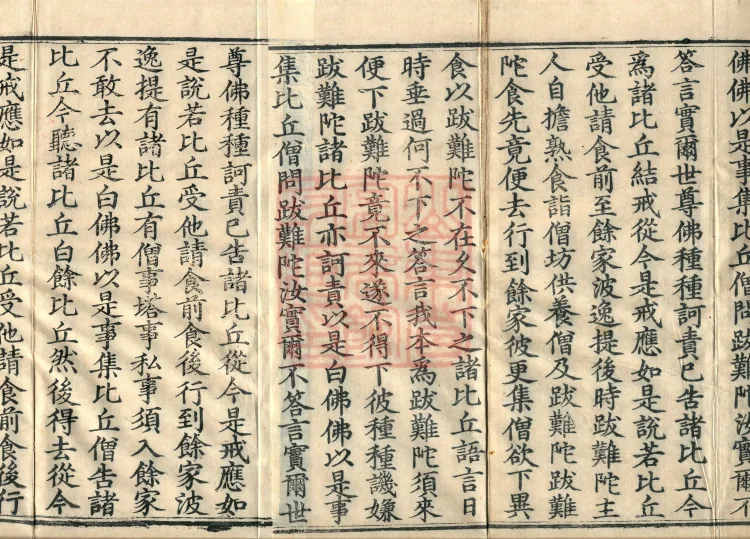 佛佛以是事集比丘僧問跋難陀汝實爾不
答言實爾世尊佛種種訶責已告諸比丘今
為諸比丘結戒從今是戒應如是說若比丘
受他請食前至餘家波逸提後時跋難陀主
人自擔熟食詣僧坊供養僧及跋難陀跋難
陀食先竟便去行到餘家彼更集僧欲下異
食以跋難陀不在久不下之諸比丘語言日
時垂過何不下之答言我本為跋難陀須來
便下跋難陀竟不來遂不得下彼種種譏嫌
跋難陀諸比丘亦訶責以是白佛佛以是事
集比丘僧問跋難陀汝實爾不答言實爾世
尊佛種種訶責已告諸比丘從今是戒應如
是說若比丘受他請食前食後行到餘家波
逸提有諸比丘有僧事塔事私事須入餘家
不敢去以是白佛佛以是事集比丘僧告諸
比丘今聽諸比丘白餘比丘然後得去從今
是戒應如是說若比丘受他請食前食後行